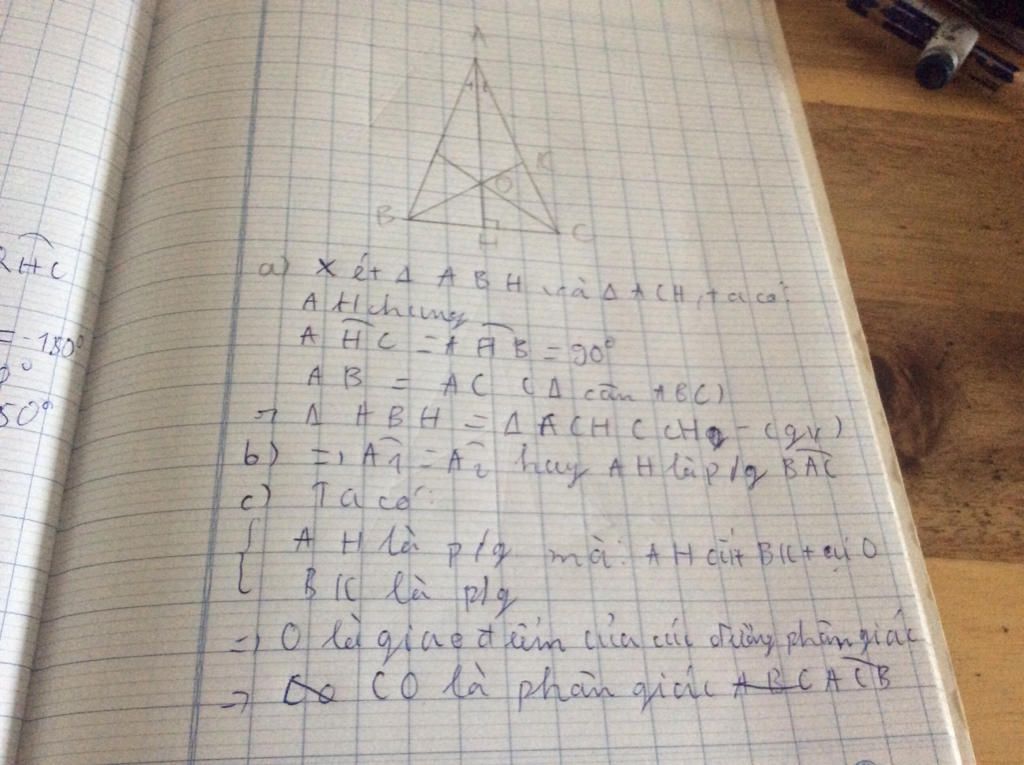 A
1 2
K
O
B
H
C
RHC
= 180°
50°
a) Xét Δ ABH và Δ ACH, ta có:
AH chung
AHC = AHB = 90°
AB = AC (Δ cân ABC)
=> Δ ABH = Δ ACH (CH - cgv)
b) => A1 = A2 hay AH là p/g BAC
c) Ta có:
{ AH là p/g mà: AH cắt BK tại O
BK là p/g
=> O là giao điểm của các đường phân giác
=> CO là phân giác ACB